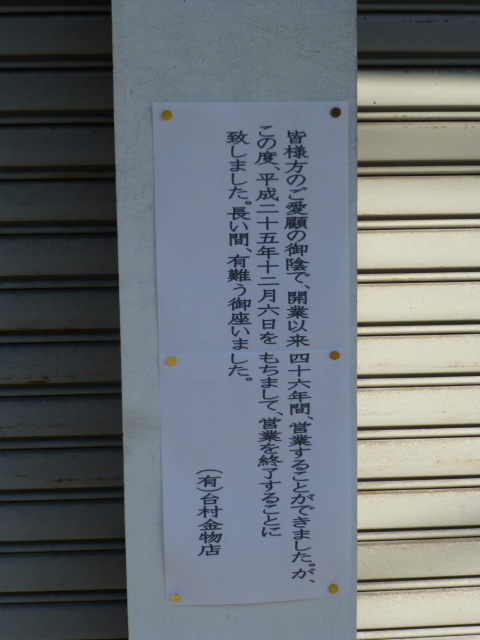 皆様方のご愛顧の御陰で、開業以来四十六年間、営業することができました。が、
この度、平成二十五年十二月六日をもちまして、営業を終了することに
致しました。長い間、有難う御座いました。
(有)台村金物店